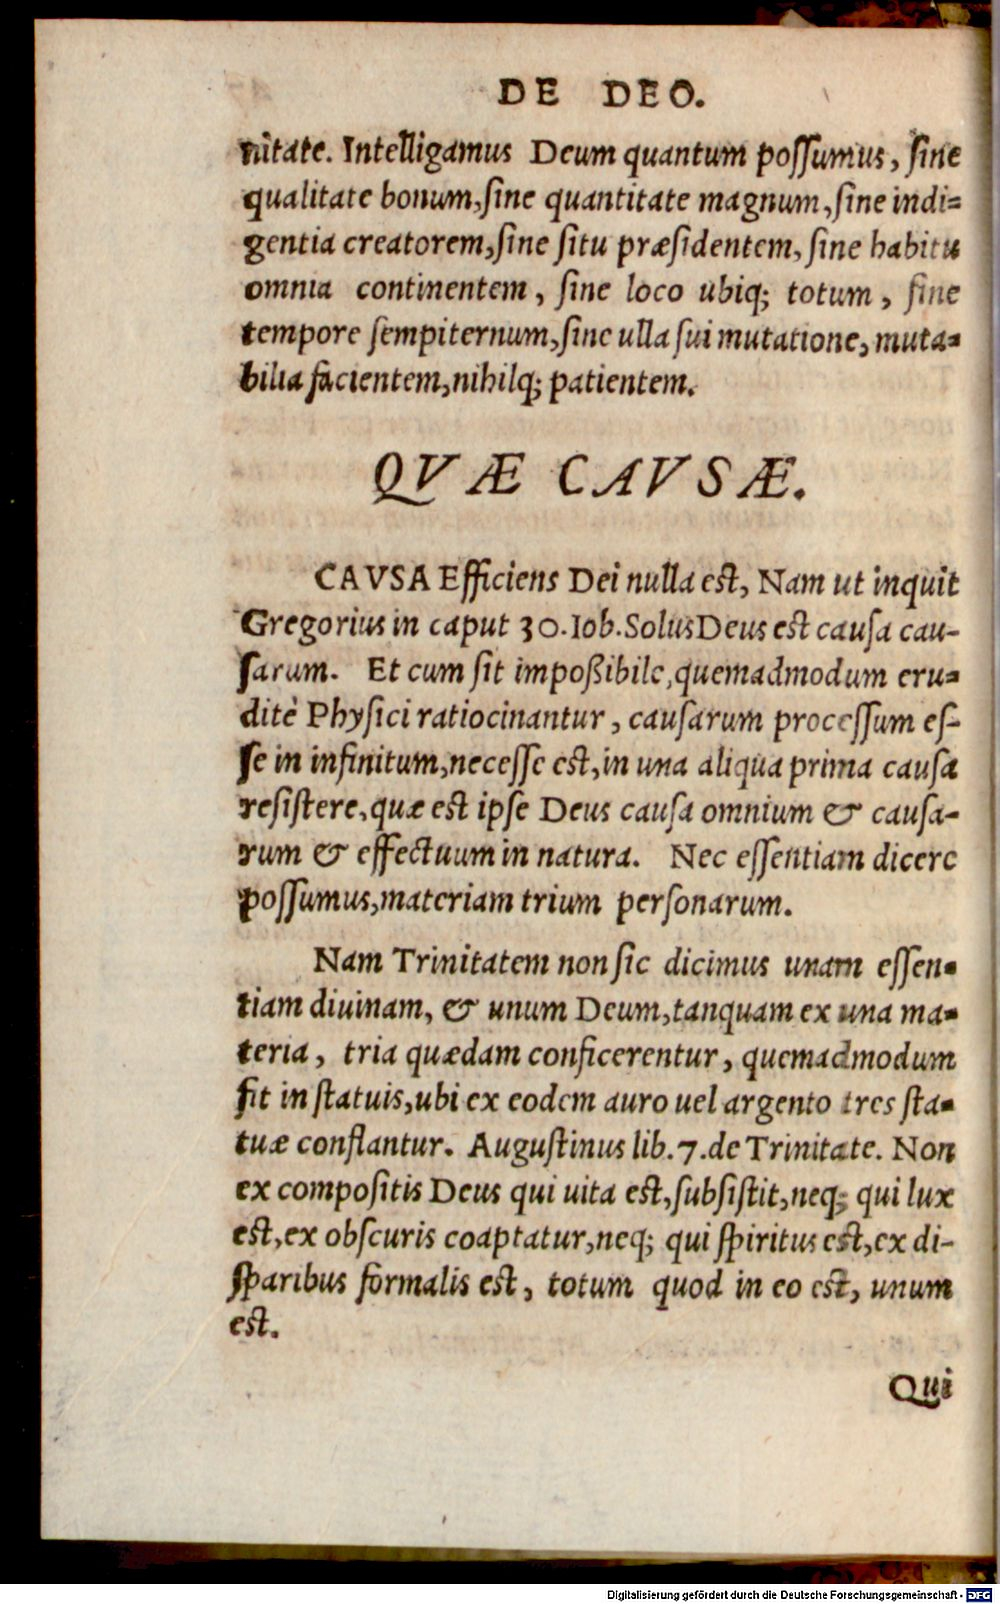 DE DEO.
nitate. Intelligamus Deum quantum poſſumus, ſine
qualitate bonum, ſine quantitate magnum, ſine indi-
gentia creatorem, ſine ſitu præſidentem, ſine habitu
omnia continentem, ſine loco ubiq; totum, ſine
tempore ſempiternum, ſine ulla ſui mutatione, muta-
bilia facientem, nihilq; patientem.
QVÆ CAVSÆ.
CAVSA Efficiens Dei nulla est, Nam ut inquit
Gregorius in caput 30. Iob. Solus Deus est cauſa cau-
ſarum. Et cum ſit impoßibile, quemadmodum eru-
ditè Phyſici ratiocinantur, cauſarum proceſſum eſ-
ſe in infinitum, neceſſe est, in una aliqua prima cauſa
reſiſtere, quæ est ipſe Deus cauſa omnium & cauſa-
rum & effectuum in natura. Nec eſſentiam dicere
poſſumus, materiam trium perſonarum.
Nam Trinitatem non ſic dicimus unam eſſen-
tiam diuinam, & unum Deum, tanquam ex una ma-
teria, tria quædam conficerentur, quemadmodum
fit in ſtatuis, ubi ex eodem auro uel argento tres ſta-
tuæ conflantur. Auguſtinus lib. 7. de Trinitate. Non
ex compoſitis Deus qui uita est, ſubſiſtit, neq; qui lux
est, ex obſcuris coaptatur, neq; qui ſpiritus est, ex di-
ſparibus formalis est, totum quod in eo est, unum
est.
Qui
Digitalisierung gefördert durch die Deutsche Forschungsgemeinschaft - DFG